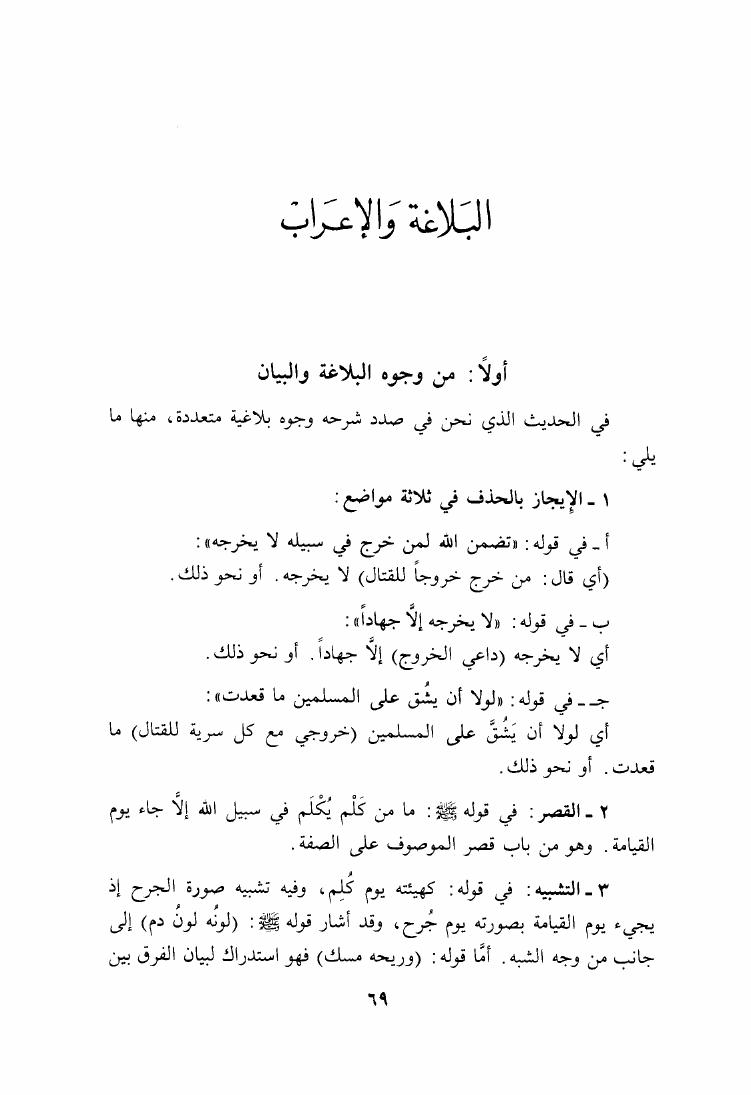 البَلاغة وَالإعرَاب
أولاً: من وجوه البلاغة والبيان
في الحديث الذي نحن في صدد شرحه وجوه بلاغية متعددة، منها ما
يلي:
١ - الإيجاز بالحذف في ثلاثة مواضع:
أ - في قوله: «تضمن الله لمن خرج في سبيله لا يخرجه»:
(أي قال: من خرج خروجاً للقتال) لا يخرجه. أو نحو ذلك.
ب - في قوله: «لا يخرجه إلَّا جهاداً»:
أي لا يخرجه (داعي الخروج) إلَّا جهاداً. أو نحو ذلك.
جـ - في قوله: «لولا أن يشُق على المسلمين ما قعدت»:
أي لولا أن يَشُقَّ على المسلمين (خروجي مع كل سرية للقتال) ما
قعدت. أو نحو ذلك.
٢ - القصر: في قوله ﷺ: ما من كَلْم يُكْلَم في سبيل الله إلَّا جاء يوم
القيامة. وهو من باب قصر الموصوف على الصفة.
٣ - التشبيه: في قوله: كهيئته يوم كُلِم، وفيه تشبيه صورة الجرح إذ
يجيء يوم القيامة بصورته يوم جُرح، وقد أشار قوله ﷺ: (لونُه لونُ دم) إلى
جانب من وجه الشبه. أمَّا قوله: (وريحه مسك) فهو استدراك لبيان الفرق بين
٦٩